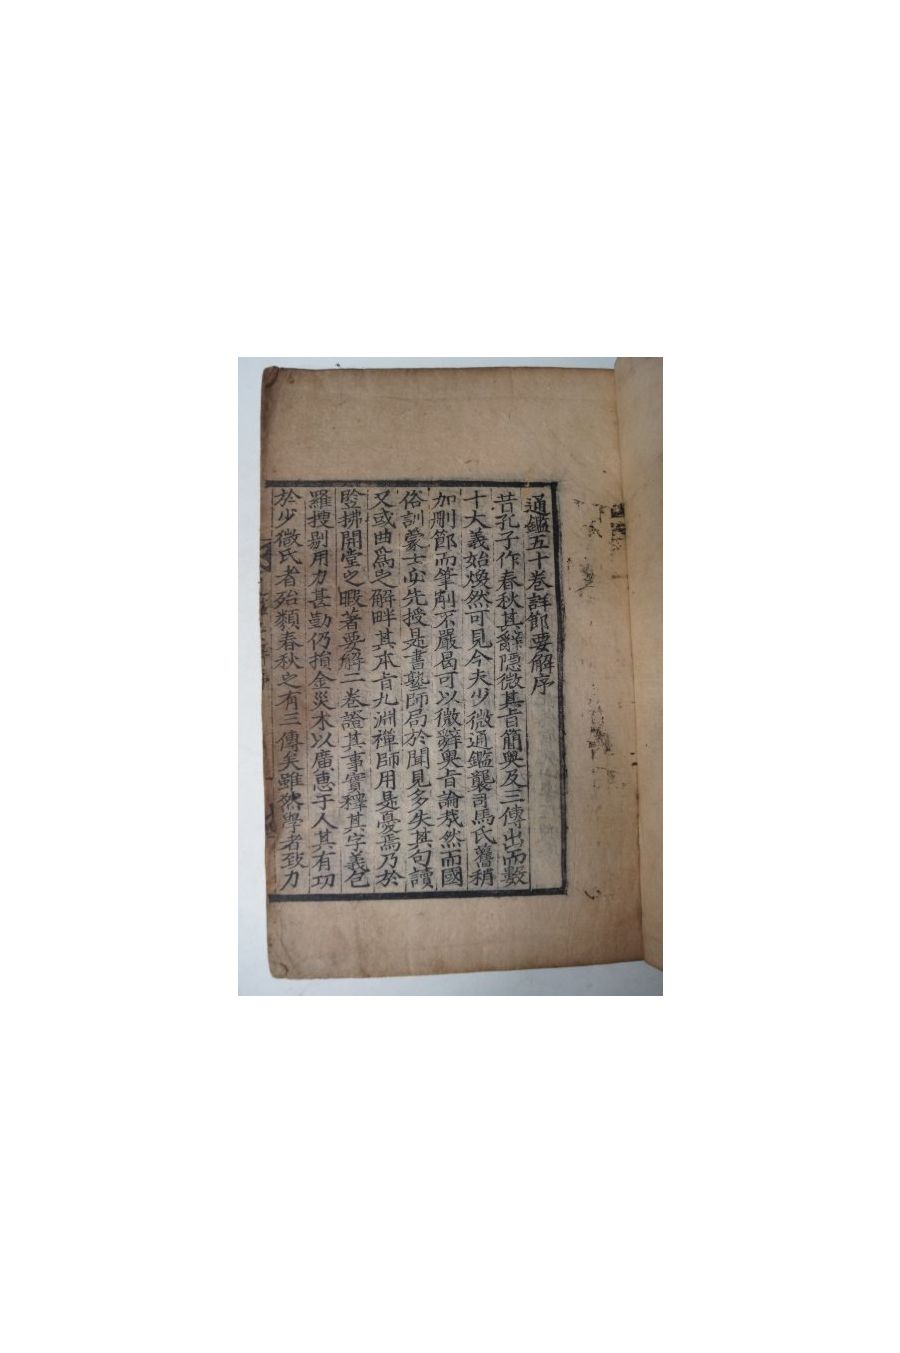 通鑑五十卷詳節要解序
昔孔子作春秋其辭隱微其旨簡奧及三傳出而數
十大義始煥然可見今夫少微通鑑襲司馬氏舊稍
加刪節而筆削不嚴曷可以微辭奧旨論哉然而國
俗訓蒙士必先授是書塾師局於聞見多失其句讀
又或曲爲之解畔其本旨九淵禪師用是憂焉乃於
竪拂開堂之暇著要解二卷證其事實釋其字義包
羅搜剔用力甚勤仍損金災木以廣惠于人其有功
於少微氏者殆類春秋之有三傳矣雖然學者致力